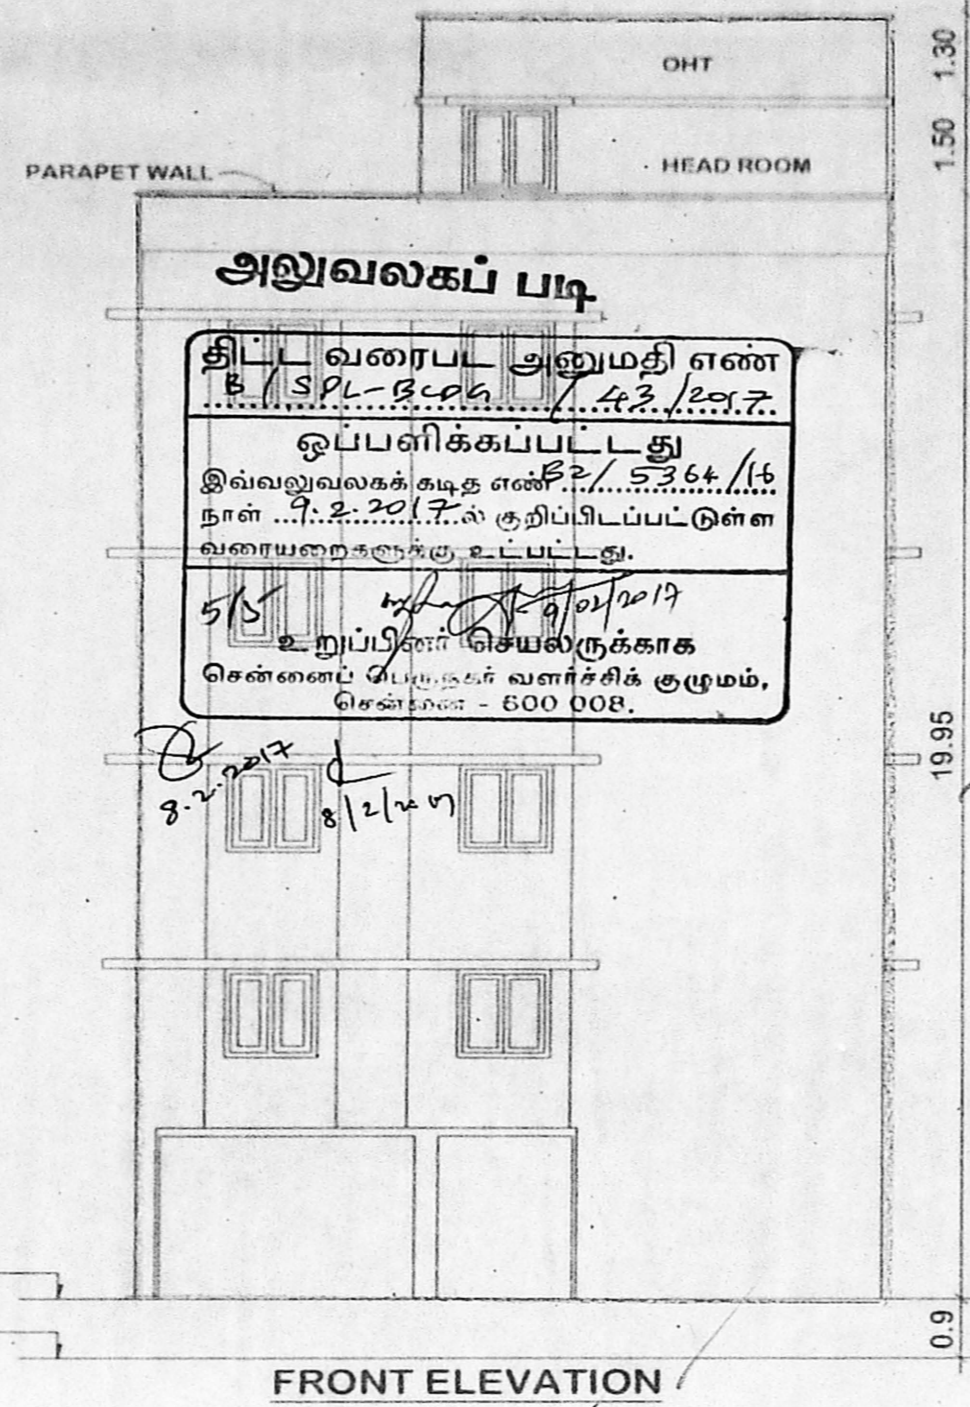 OHT
1.30
1.50
HEAD ROOM
PARAPET WALL
அலுவலகப் படி
திட்ட வரைபட அனுமதி எண்
B / SPL-BLDG / 43 / 2017
ஒப்பளிக்கப்பட்டது
இவ்வலுவலகக் கடித எண் B2/ 5364 /16
நாள் 9.2.2017 ல் குறிப்பிடப்பட்டுள்ள
வரையறைகளுக்கு உட்பட்டது.
5/5
9/02/2017
உறுப்பினர் செயலருக்காக
சென்னைப் பெருநகர் வளர்ச்சிக் குழுமம்,
சென்னை - 600 008.
8.2.2017
8/2/2017
19.95
0.9
FRONT ELEVATION